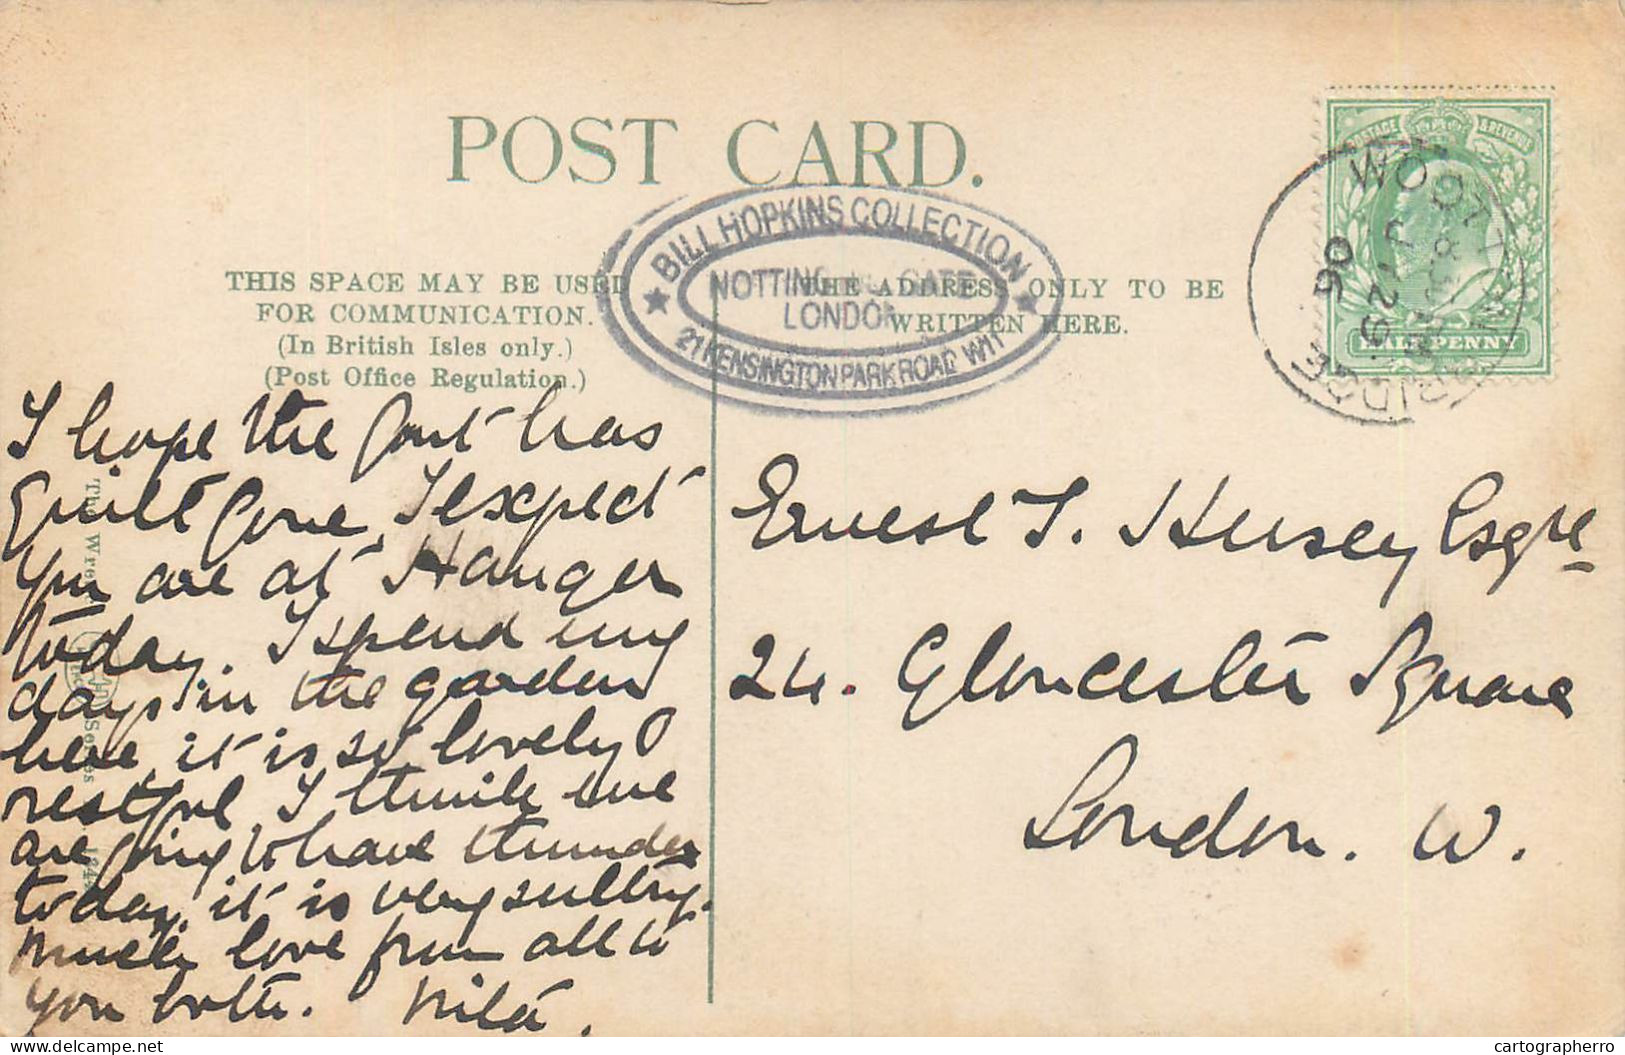 POST CARD.
BILL HOPKINS COLLECTION
NOTTING GATE
LONDON
21 KENSINGTON PARK ROAD W11
THIS SPACE MAY BE USED
FOR COMMUNICATION.
(In British Isles only.)
(Post Office Regulation.)
THE ADDRESS ONLY TO BE
WRITTEN HERE.
POSTAGE & REVENUE
HALFPENNY
WOODBRIDGE
JU 29
06
I hope the Gout has
quite gone. I expect
you are at Hanger
today. I spend my
days in the garden
here, it is so lovely &
restful I think we
are going to have thunder
today, it is very sultry.
Much love from all to
you both. Nita.
Ernest T. Hersey Esqre
24. Gloucester Square
London. W.
The Wrench Series
cartographerro